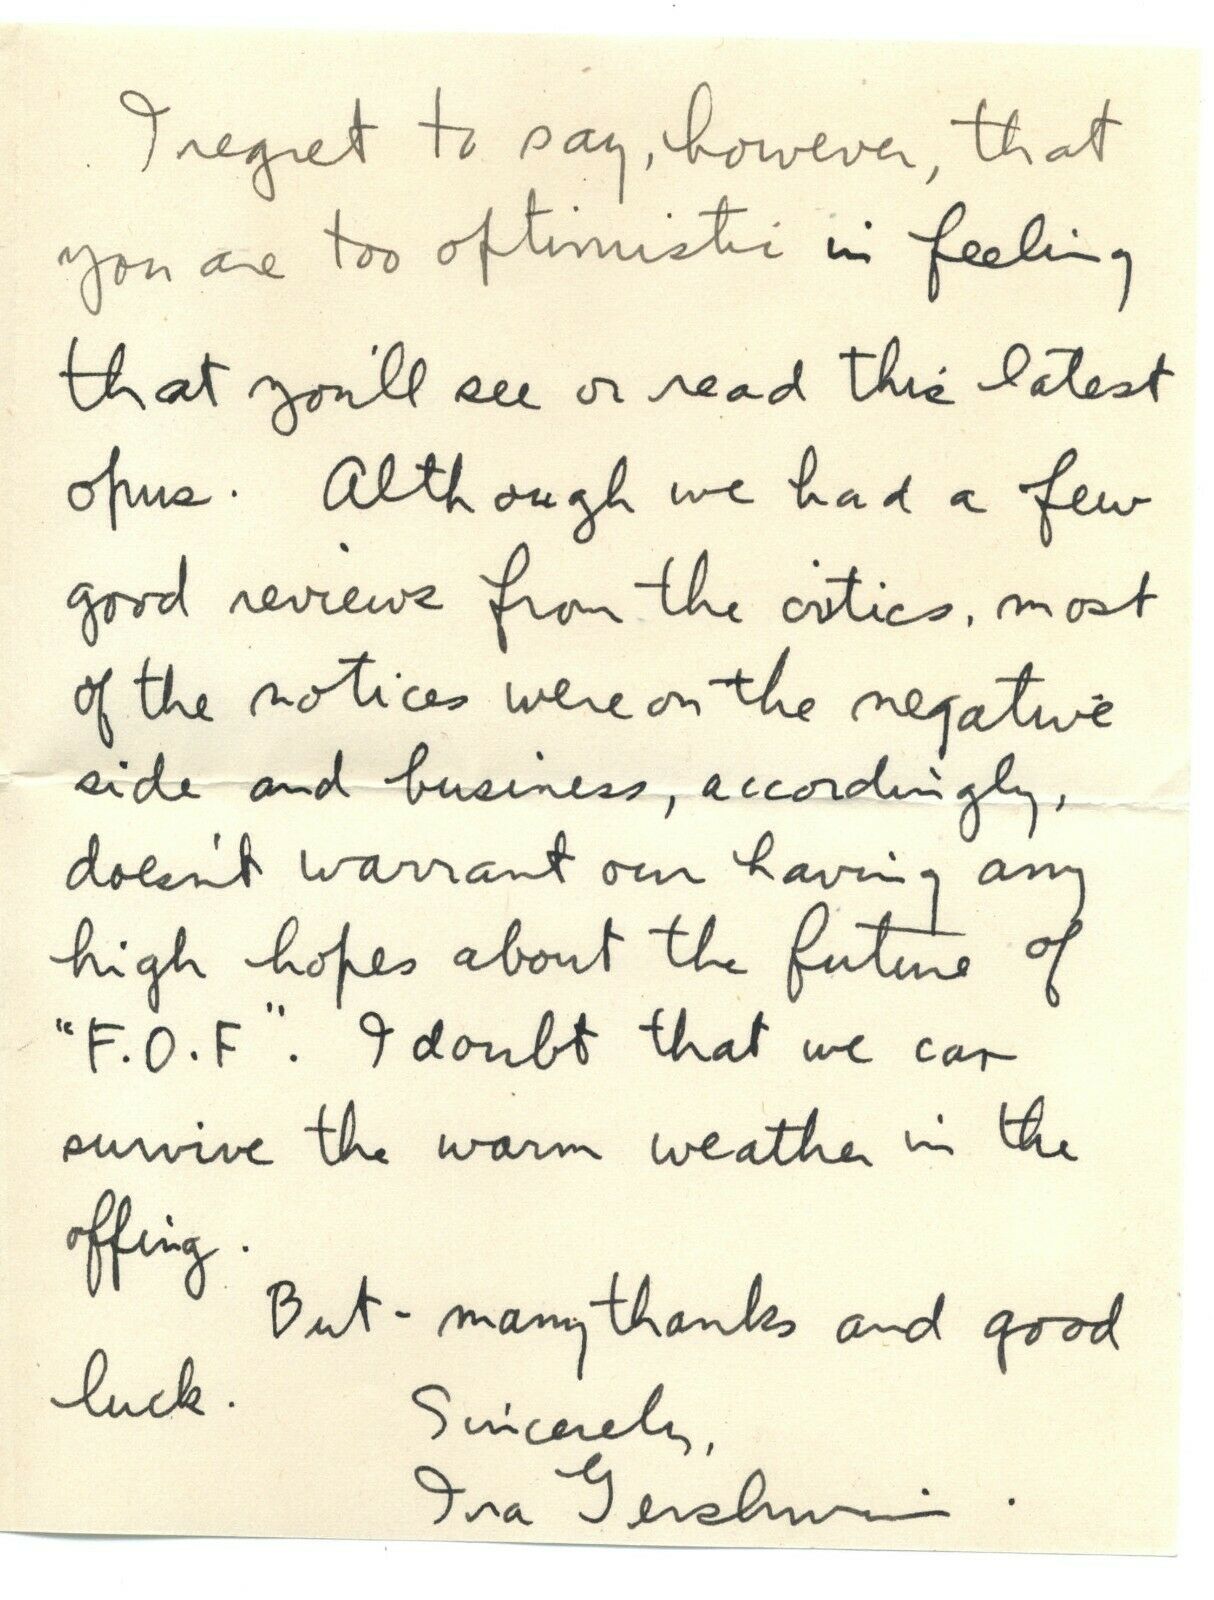 I regret to say, however, that
you are too optimistic in feeling
that you'll see or read this latest
opus. Although we had a few
good reviews from the critics, most
of the notices were on the negative
side and business, accordingly,
doesn't warrant our having any
high hopes about the future of
"F.O.F". I doubt that we can
survive the warm weather in the
offing.
But - many thanks and good
luck.
Sincerely,
Ira Gershwin.